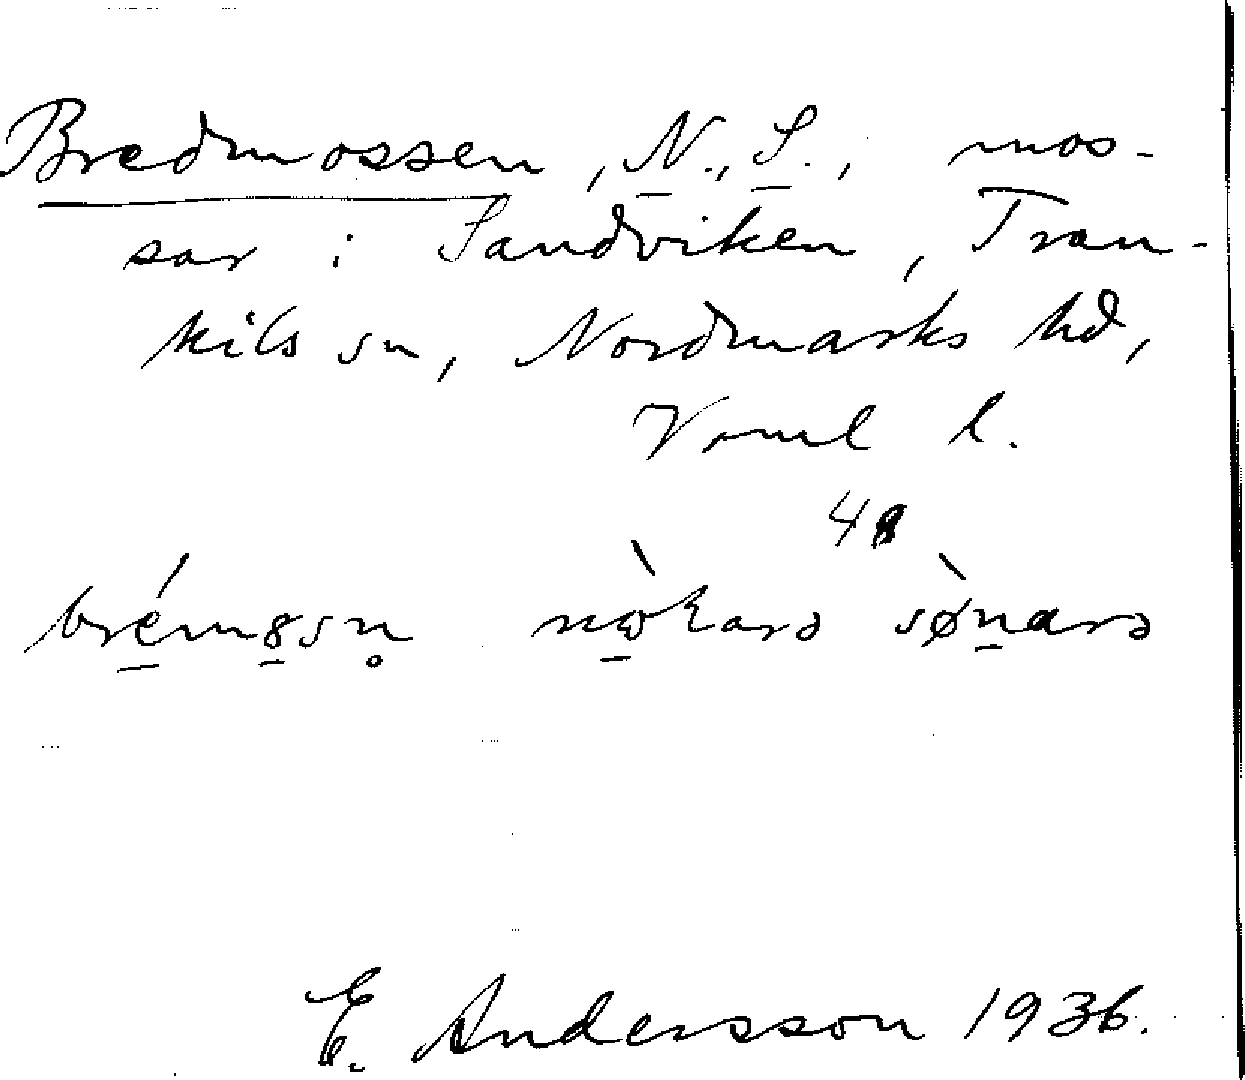 Bredmossen, N., S., mos-
sar i Sandviken, Tran-
kils sn, Nordmarks hd,
Vrml l.
48
brémȣsn nòkarə sònarə
E. Andersson 1936.